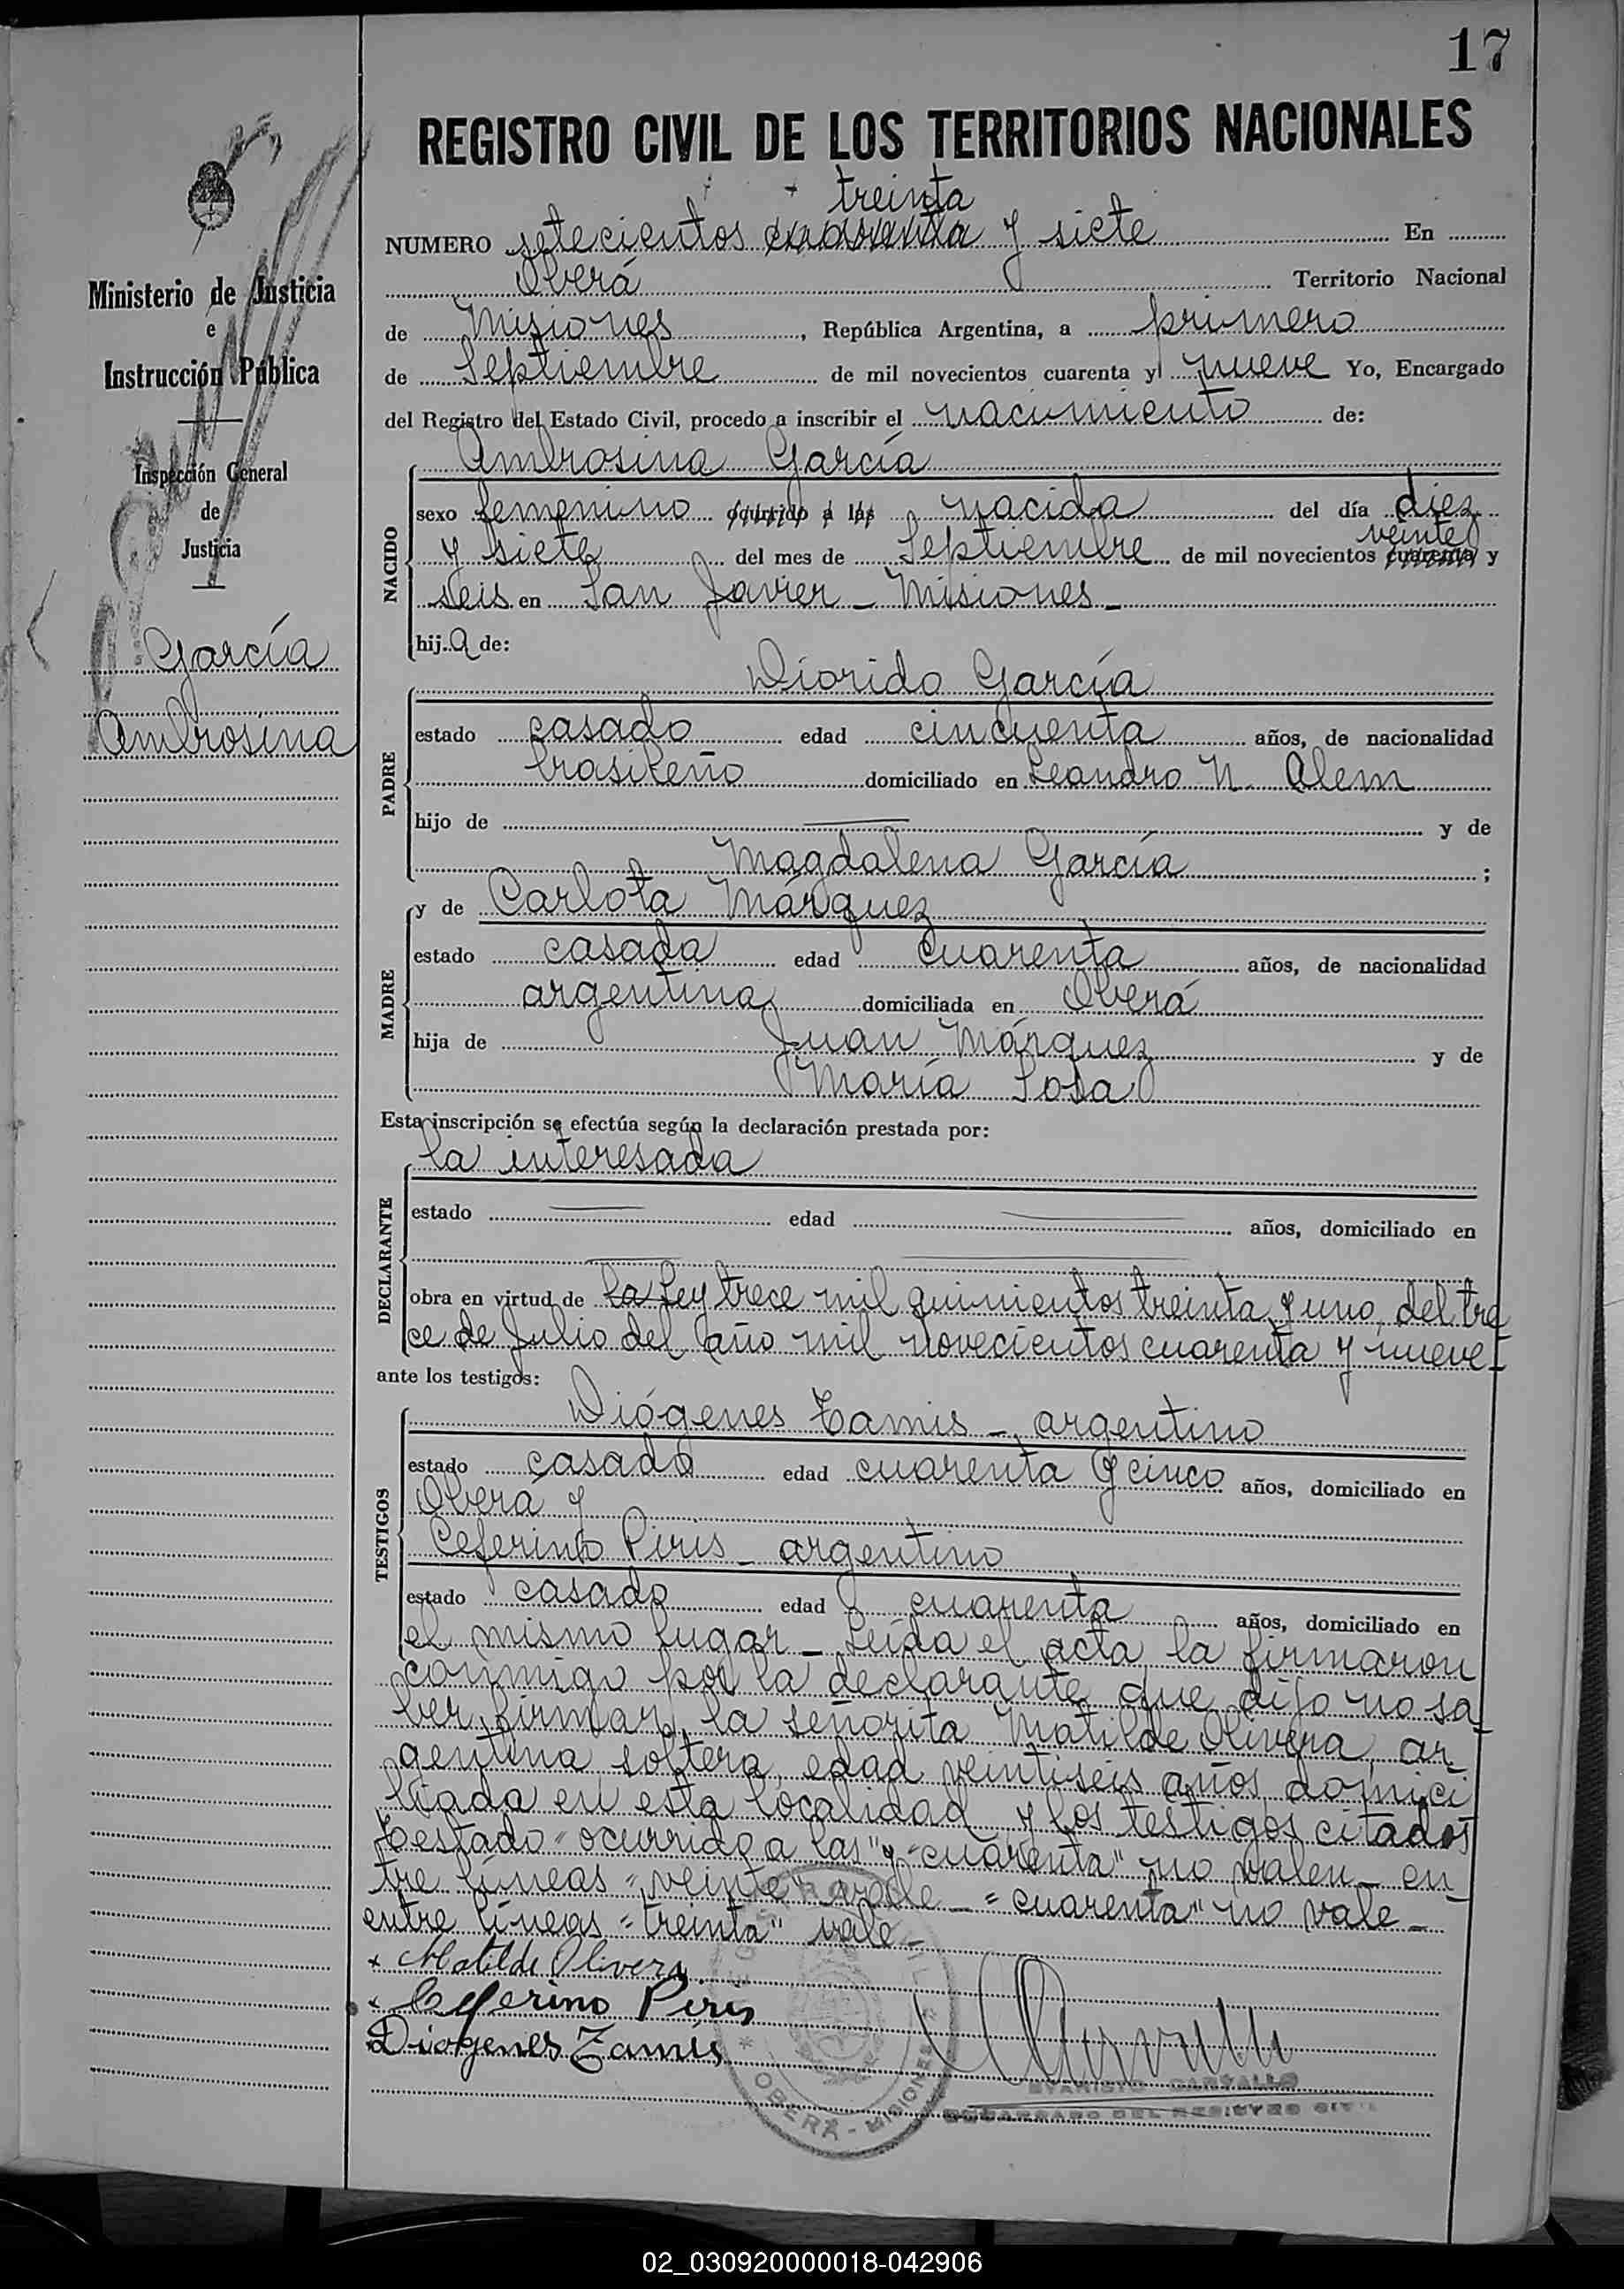 17
REGISTRO CIVIL DE LOS TERRITORIOS NACIONALES
treinta
NUMERO setecientos cuarenta y siete En
Oberá Territorio Nacional
de Misiones, República Argentina, a primero
de Septiembre de mil novecientos cuarenta y nueve Yo, Encargado
del Registro del Estado Civil, procedo a inscribir el nacimiento de:
Ministerio de Justicia
e
Instrucción Pública
Inspección General
de
Justicia
García
Ambrosina
NACIDO
Ambrosina García
sexo femenino ocurrido a las nacida del día diez
veinte
y siete del mes de Septiembre de mil novecientos cuarenta y
seis en San Javier - Misiones -
hij.a de:
PADRE
Diorido García
estado casado edad cincuenta años, de nacionalidad
brasileño domiciliado en Leandro N. Alem
hijo de y de
Magdalena García ;
MADRE
y de Carlota Márquez
estado casada edad cuarenta años, de nacionalidad
argentina domiciliada en Oberá
hija de Juan Márquez y de
María Sosa
Esta inscripción se efectúa según la declaración prestada por:
DECLARANTE
la interesada
estado edad años, domiciliado en
obra en virtud de la Ley trece mil quinientos treinta y uno, del tre
ce de Julio del año mil novecientos cuarenta y nueve -
ante los testigos:
TESTIGOS
Diógenes Zamis - argentino
estado casado edad cuarenta y cinco años, domiciliado en
Oberá y
Ceferino Piris - argentino
estado casado edad cuarenta años, domiciliado en
el mismo lugar - Leída el acta, la firmaron
conmigo por la declarante que dijo no sa
ber firmar, la señorita Matilde Olivera, ar
gentina soltera, edad veintiseis años, domici
liada en esta localidad y los testigos citados
"ocurrido a las" y "cuarenta" no valen - en
tre líneas "veinte" vale - "cuarenta" no vale -
entre líneas "treinta" vale -
x Matilde Olivera
x Ceferino Piris
Diogenes Zamis
OBERÁ - MISIONES
EVARISTO CARVALLO
ENCARGADO DEL REGISTRO CIVIL
02_030920000018-042906